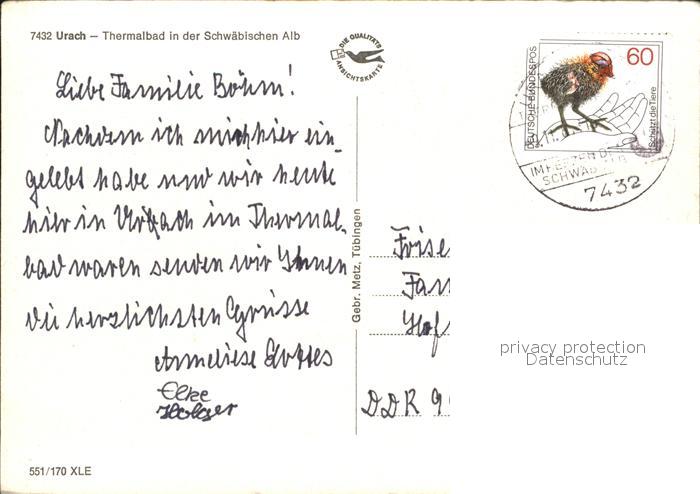 7432 Urach – Thermalbad in der Schwäbischen Alb
DIE QUALITÄTS
ANSICHTSKARTE
Liebe Familie Böhm!
Nachdem ich mich hier ein-
gelebt habe und wir heute
hier in Urach im Thermal-
bad waren senden wir Ihnen
die herzlichsten Grüsse
Anneliese
Elke
Holger
551/170 XLE
Gebr. Metz, Tübingen
DEUTSCHE BUNDESPOS
60
Schützt die Tiere
IM HERZEN D
SCHWÄB
7432
Frise
Fam
Hof
DDR 9
privacy protection
Datenschutz